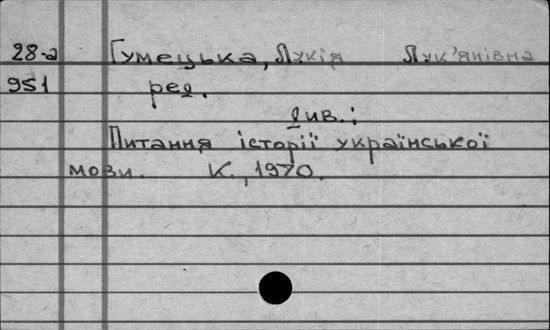 28-а Гумецька, Лукія Лук'янівна
951 ред.
див.:
Питання історії української
мови. К., 1970.